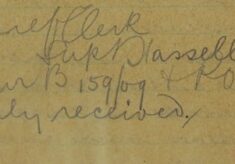 ref Clerk
Supt Hassell
ur B 159/09 & PO
ly received.